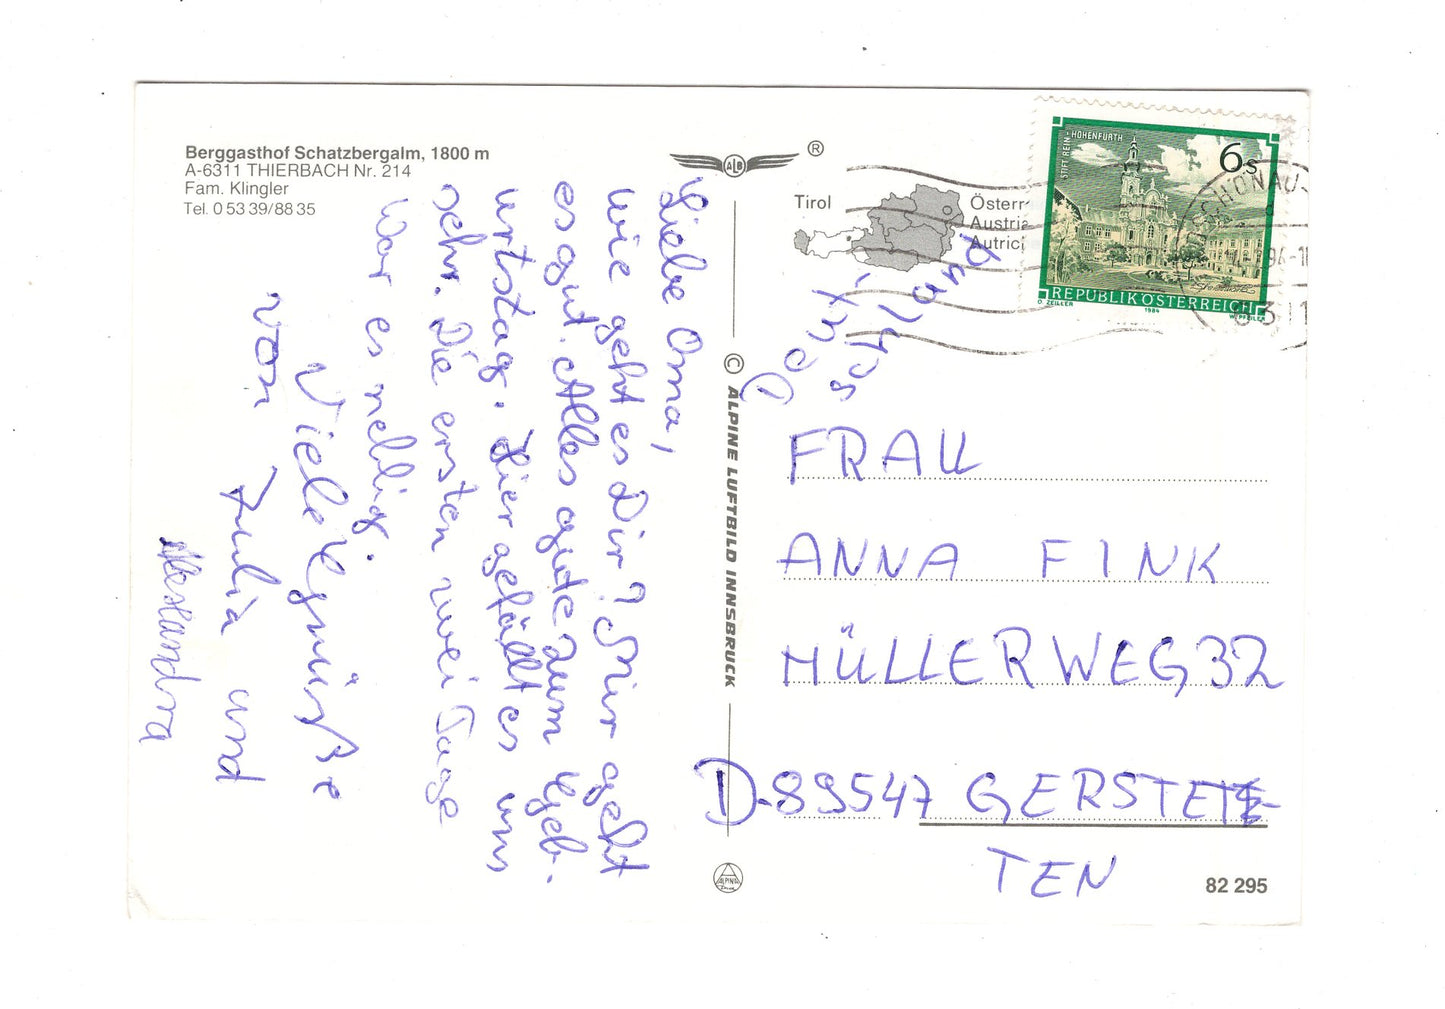 Berggasthof Schatzbergalm, 1800 m
A-6311 THIERBACH Nr. 214
Fam. Klingler
Tel. 0 53 39/88 35
Liebe Oma,
wie geht es Dir? Mir geht
es gut. Alles gute zum Geb-
urtstag. Hier gefällt es uns
sehr. Die ersten zwei Tage
war es neblig.
Viele Grüße
von Julia und
Alexandra
© ALPINE LUFTBILD INNSBRUCK
ALPINE
ALB
®
Tirol
Österr
Austria
Autrici
STIFT REIN-HOHENFURTH
6 S
REPUBLIK ÖSTERREICH
D. ZEILLER
1984
W. PFEILER
SCHÖNAU-
631
Deut-
schland
FRAU
ANNA FINK
MÜLLERWEG 32
D-89547 GERSTETTE-
TEN
82 295